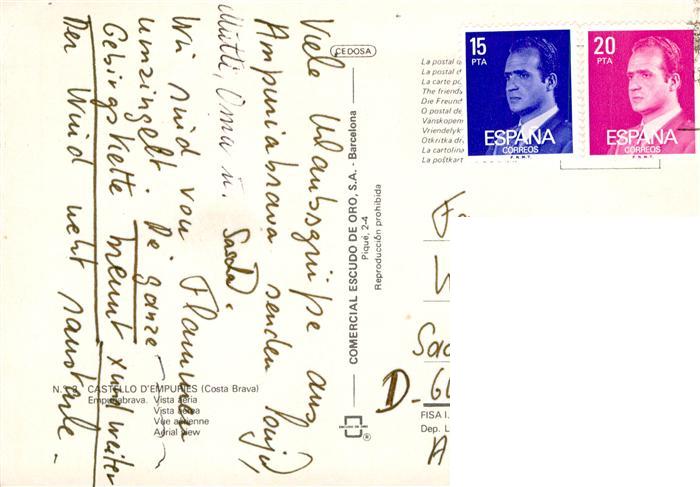 Viele Urlaubsgrüße aus
Ampuriabrava senden
Mutti, Oma u. Sascha.
Wir sind von Flammen
umzingelt. Die ganze
Gebirgskette brennt xund weiter
Der Wind weht
N.º
CASTELLO D'EMPURIES (Costa Brava)
Empuriabrava. Vista aèria
Vista aérea
Vue aérienne
Aerial view
CEDOSA
COMERCIAL ESCUDO DE ORO, S.A. - Barcelona
Piqué, 2-4
Reproducción prohibida
®
La postal
La postal
La carte po
The friends
Die Freund
O postal de
Vänskapen
Vriendelyk
Otkritka dr
La cartolina
La poštkart
15
PTA
ESPAÑA
CORREOS
F.N.M.T.
20
PTA
ESPAÑA
CORREOS
F.N.M.T.
D-6
FISA I.
Dep. L